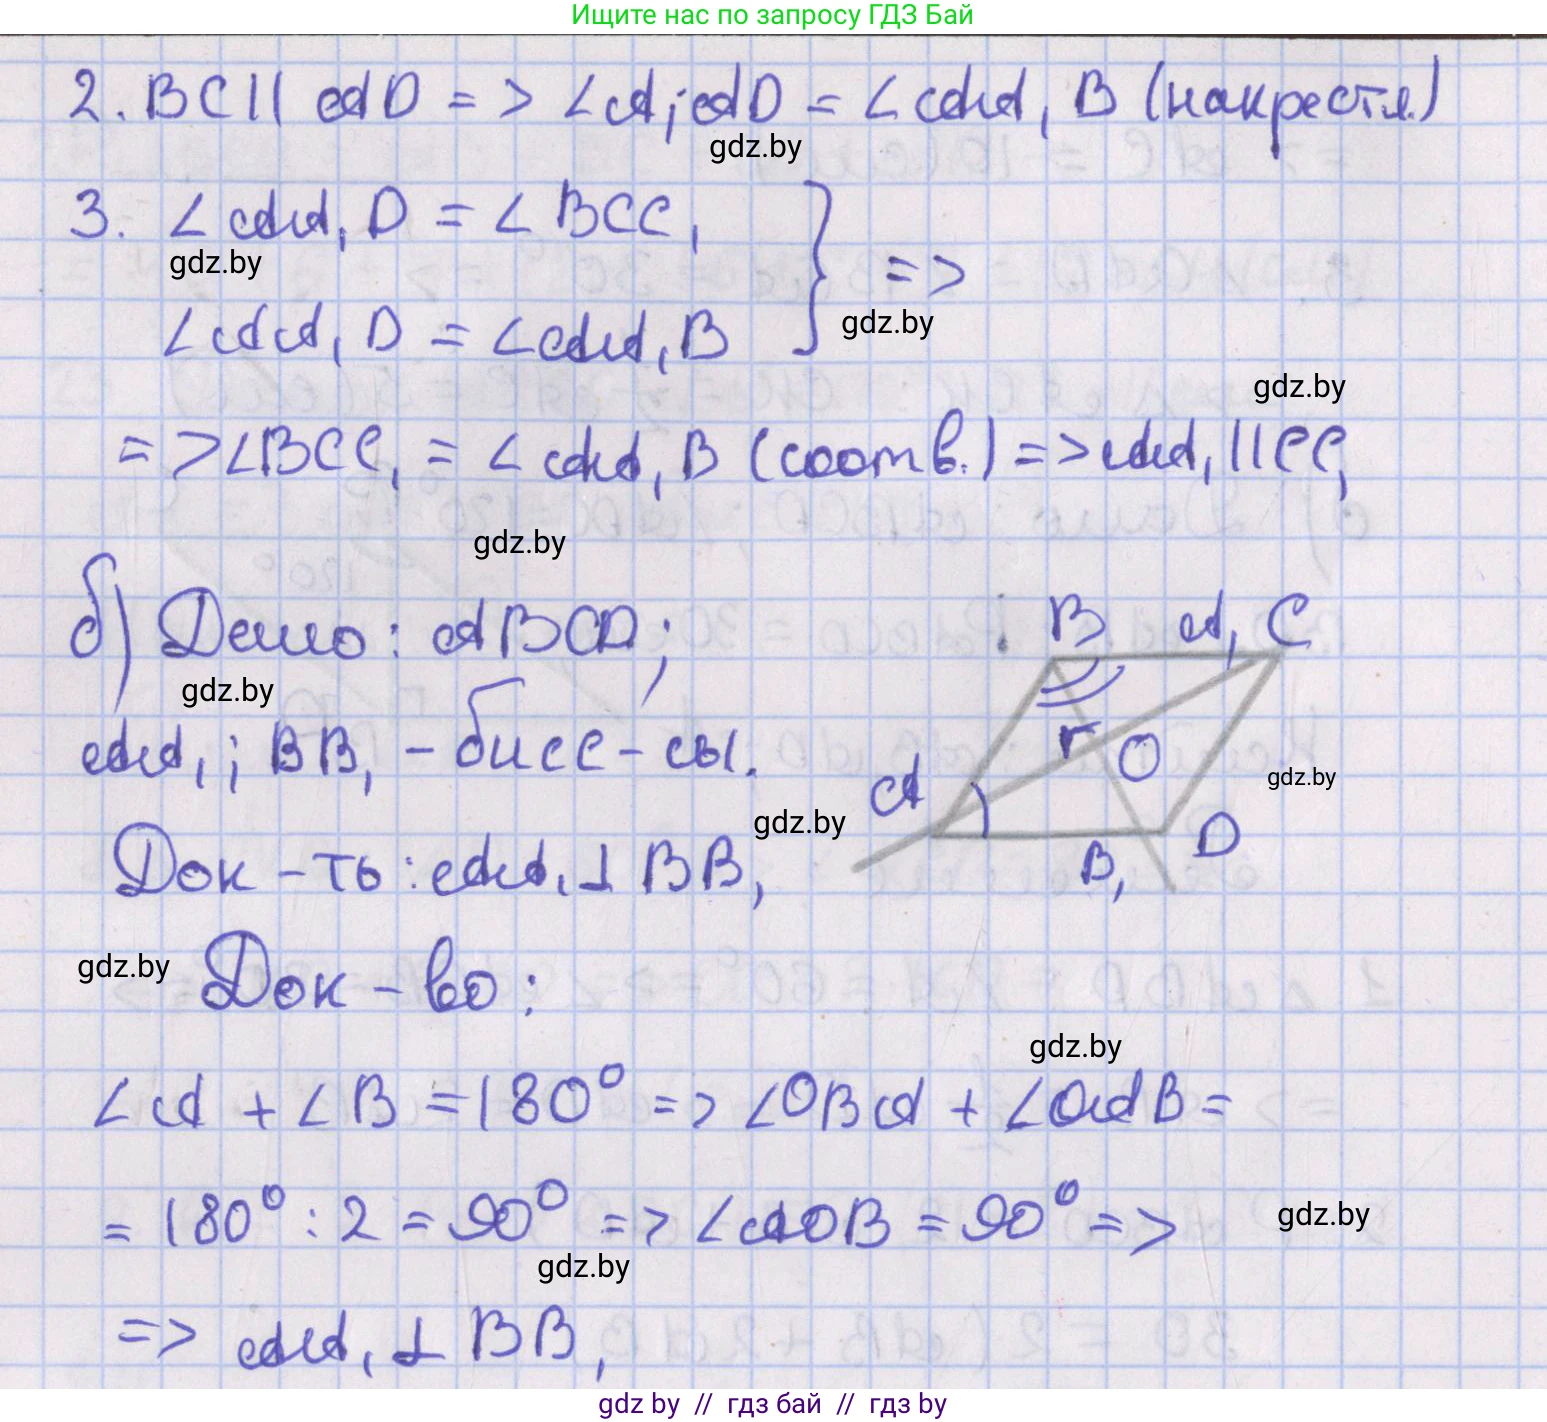 Ищите нас по запросу ГДЗ Бай
2. BC || AD => ∠A₁AD = ∠AA₁B (накрестл.)
gdz.by
3. ∠AA₁D = ∠BCC₁
gdz.by
=>
gdz.by
∠AA₁D = ∠AA₁B
gdz.by
=> ∠BCC₁ = ∠AA₁B (соотв.) => AA₁ || CC₁
gdz.by
б) Дано: ABCD;
B A₁ C
gdz.by
AA₁; BB₁ - бисс-сы.
O
A
gdz.by
gdz.by
Док-ть: AA₁ ⊥ BB₁
B₁ D
gdz.by
Док-во:
gdz.by
∠A + ∠B = 180° => ∠OBA + ∠OAB =
= 180° : 2 = 90° => ∠AOB = 90° =>
gdz.by
gdz.by
=> AA₁ ⊥ BB₁
gdz by // гдз бай // гдз by